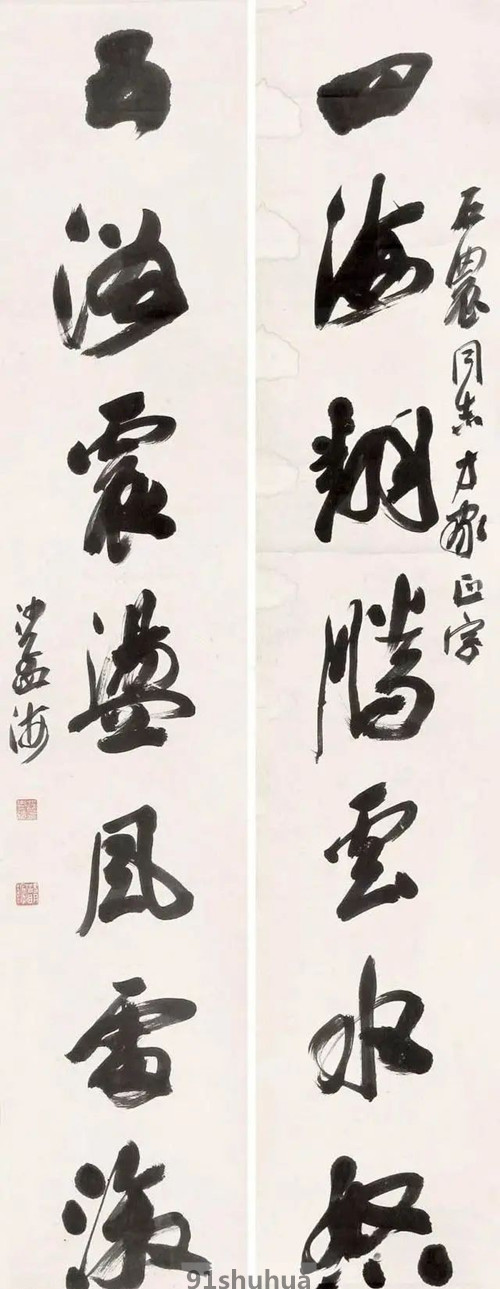 石農同志方家正字
四海翻騰雲水怒
五洲震盪風雷激
沙孟海
91shuhua